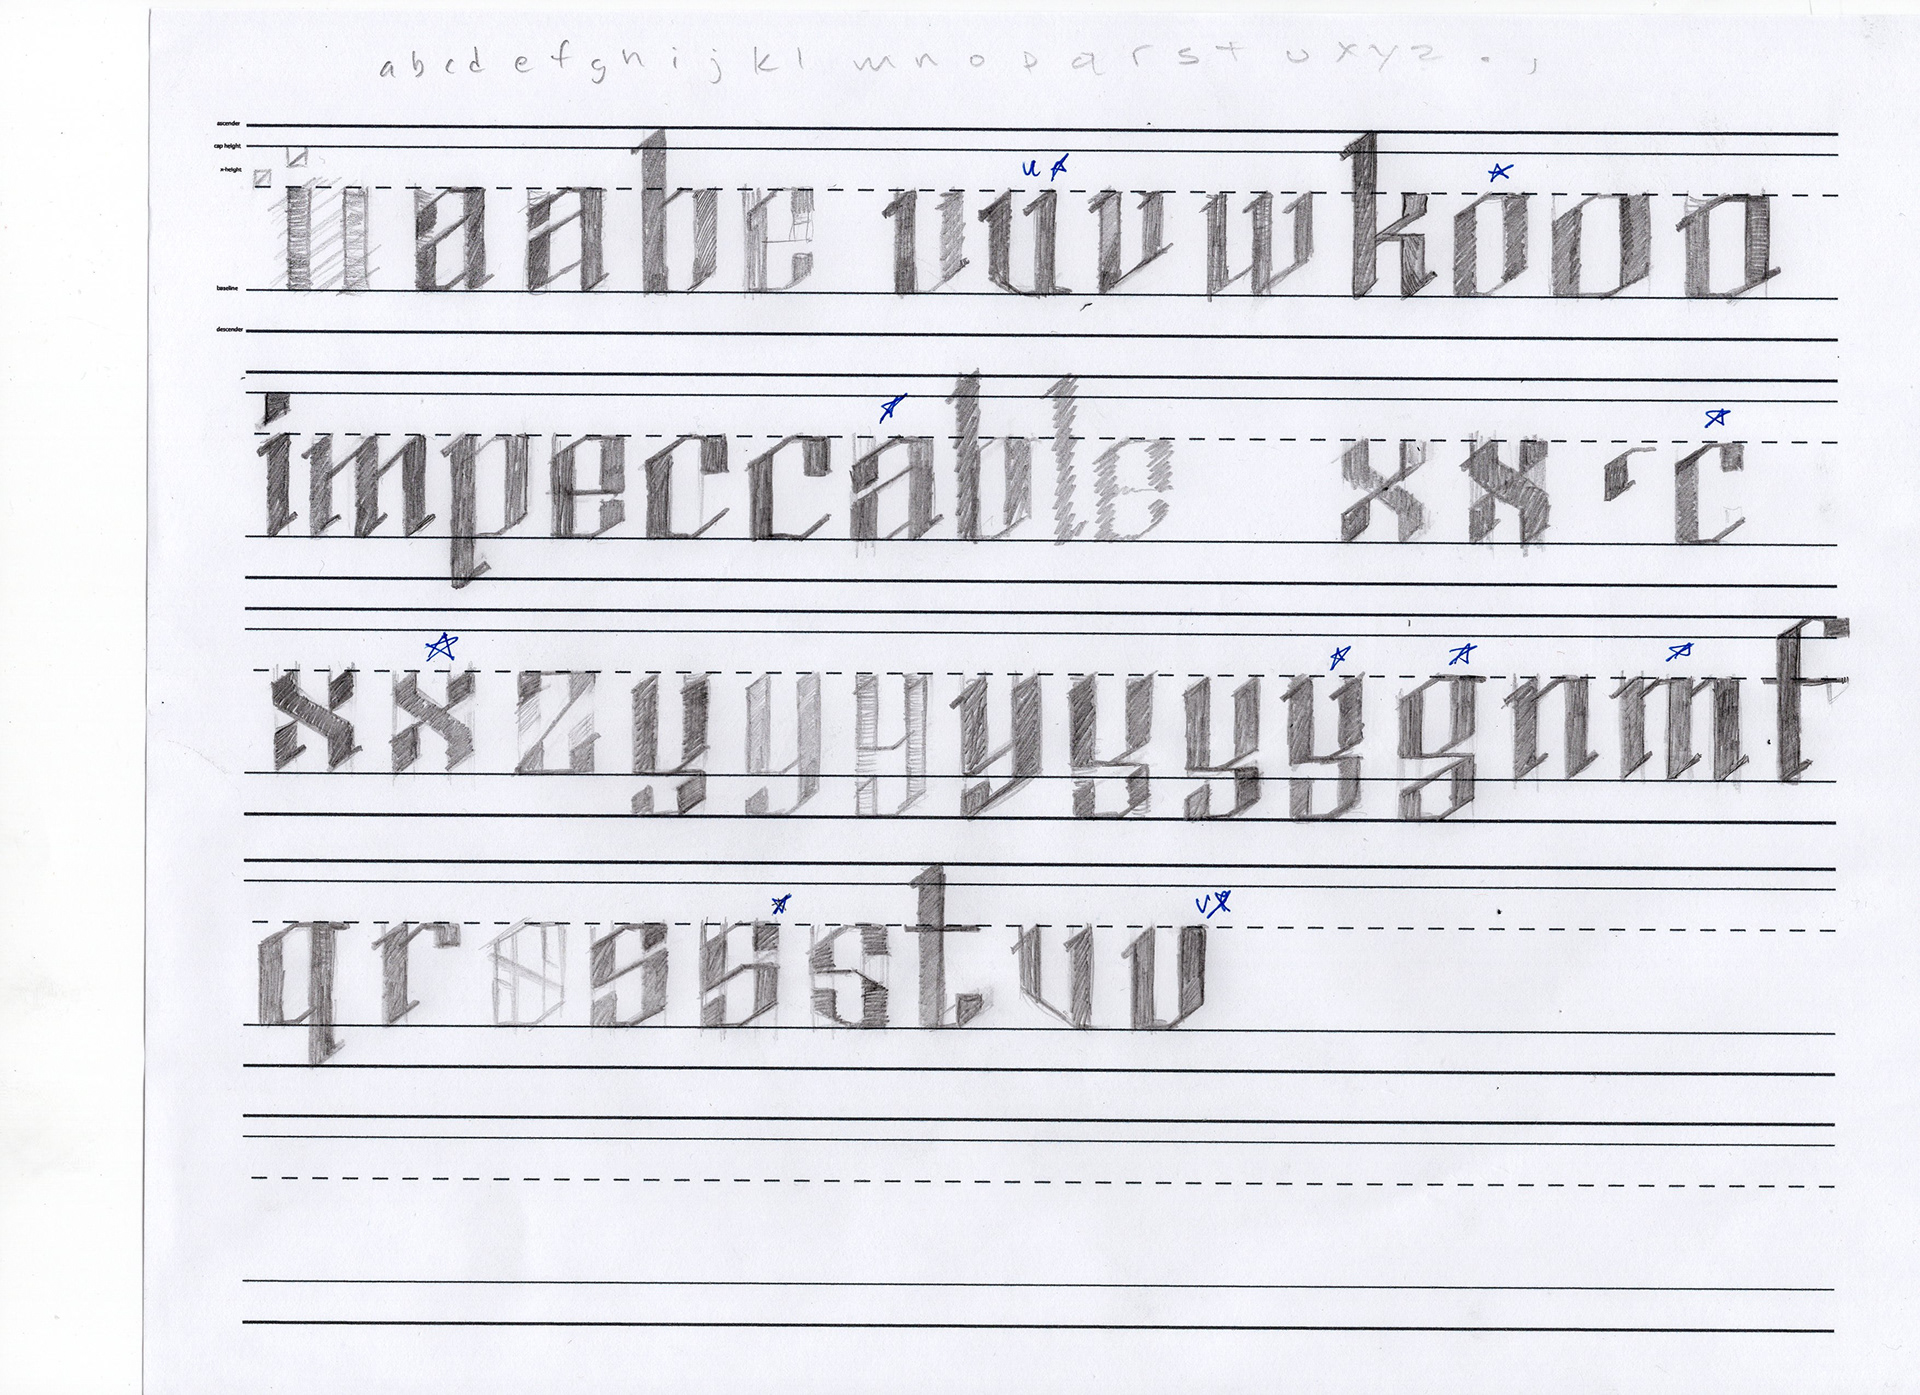 a b c d e f g h i j k l m n o p q r s t u x y z . ,
ascender
cap height
x-height
baseline
descender
u
n a a b c v u v w k o o o
impeccable x x c
x x z y y y y y y y g n m f
v
q r s s s s t v v